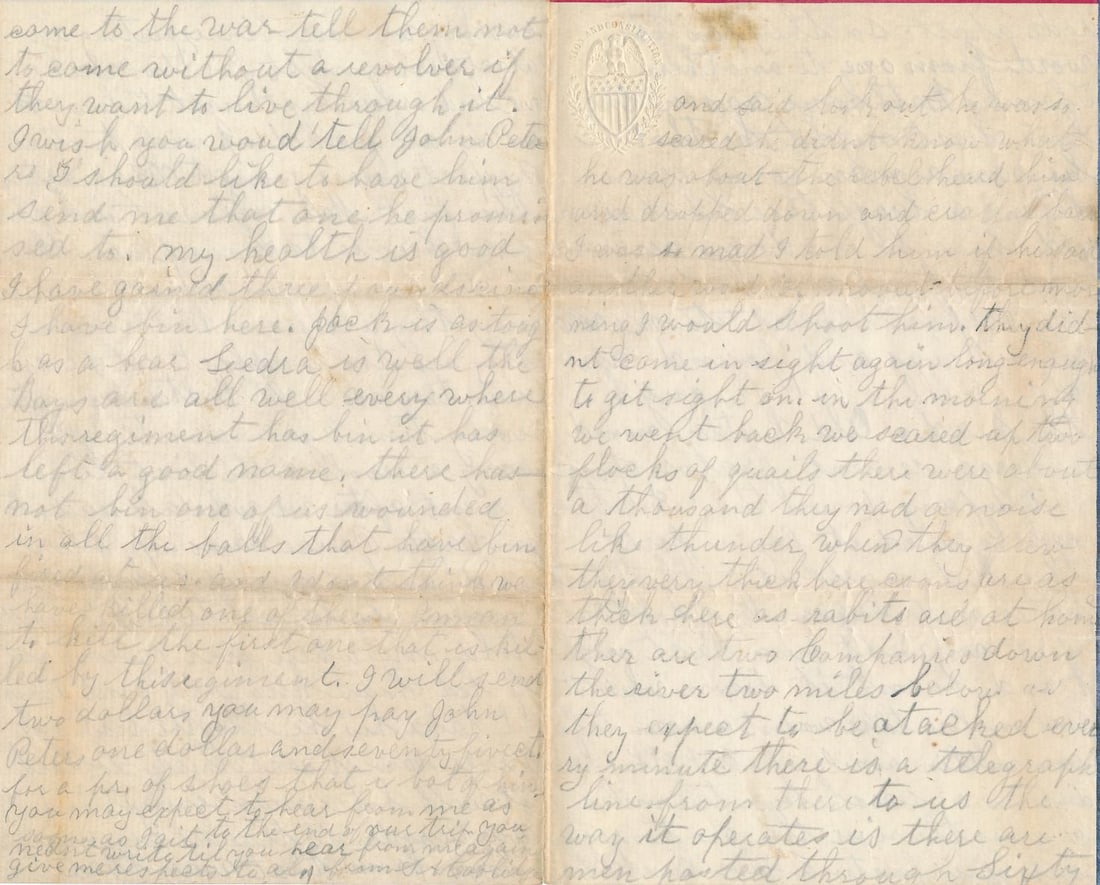 come to the war tell them not
to come without a revolver if
they want to live through it.
I wish you woud tell John Pete
rs I should like to have him
send me that one he promi
sed to. my health is good
I have gained three pounds
I have bin here. Jack is as toug
h as a bear is well the
Boys are all well every where
this regiment has bin it has
left a good name. there has
not bin one of us wounded
in all the balls that have bin
fired at us and I dont think we
have killed one of them I mean
to kill the first one that is kil
led by this regiment. I will send
two dollars you may pay John
Peters one dollar and seventy five cts
for a pr. of shoes that i bot of him
you may expect to hear from me as
soon as I git to the end of our trip you
neednt write til you hear from me again
give me respects to
AND CONSTITUTION
and said look out he was so
scared he didnt know what
he was about the rebel heard him
and dropped down and back
I was so mad I told him if he
another word or moved before mor
ning I would shoot him. they did
nt come in sight again long enough
to git sight on. in the morning
we went back we scared up two
flocks of quails there were about
a thousand they mad a noise
like thunder when they
they very thick here are as
thick here as rabits are at home
ther are two Companies down
the river two miles below us
they expect to be atacked eve
ry minute there is a telegraph
line from there to us the
way it operates is there are
men posted through Sixty